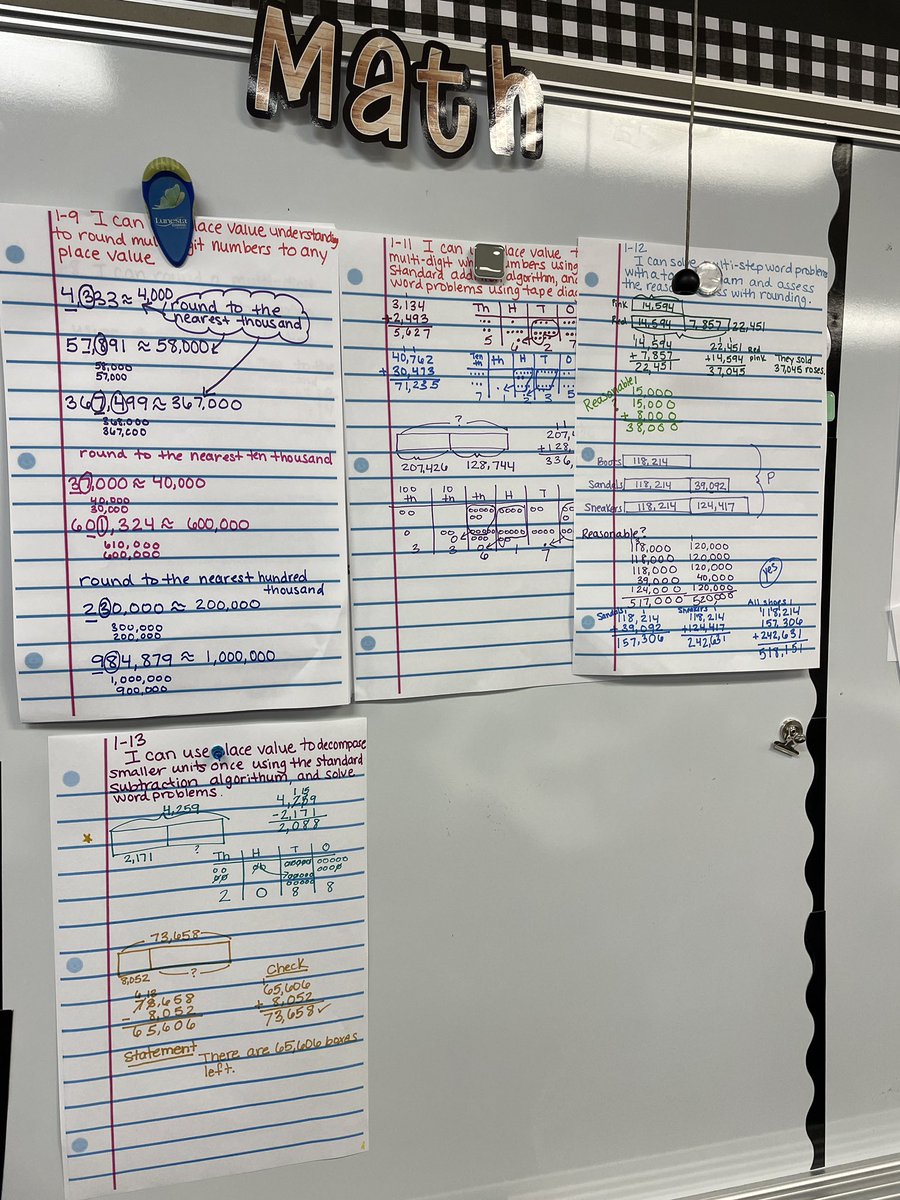 Math
Lunesta
1-9 I can lace value understanding
to round mul git numbers to any
place value.
4,333 ≈ 4,000
round to the
nearest thousand
57,891 ≈ 58,000
58,000
57,000
367,499 ≈ 367,000
368,000
367,000
round to the nearest ten thousand
37,000 ≈ 40,000
40,000
30,000
601,324 ≈ 600,000
610,000
600,000
round to the nearest hundred
thousand
230,000 ≈ 200,000
300,000
200,000
984,879 ≈ 1,000,000
1,000,000
900,000
1-11 I can lace value
multi-digit wh numbers using
Standard add algorithm, and
word problems using tape dia
3,134
+2,493
5,627
Th H T O
5 6 2 7
40,762
+ 30,473
71,235
Ten th th H T O
7 1 2 3 5
?
207,426 128,744
207,
+128,
336,
100 th 10 th th H T O
3 3 6 1 7
1-12
I can solve multi-step word problems
with a ta am and assess
the reas ss with rounding.
Pink 14,594
Red 14,594 7,857 22,451
14,594
+ 7,857
22,451
22,451 Red
+14,594 pink
37,045
They sold
37,045 roses.
Reasonable?
15,000
15,000
+ 8,000
38,000
Boots 118,214
Sandals 118,214 39,092
Sneakers 118,214 124,417
P
Reasonable?
118,000 120,000
118,000 120,000
118,000 120,000
39,000 40,000
124,000 120,000
517,000 520,000
yes
Sandals
118,214
+ 39,092
157,306
Sneakers
118,214
+124,417
242,631
All shoes
118,214
157,306
+242,631
518,151
1-13
I can use place value to decompose
smaller units once using the standard
subtraction algorithum, and solve
word problems.
4,259
2,171 ?
1 15
4,259
-2,171
2,088
Th H T O
2 0 8 8
73,658
8,052 ?
6 13
73,658
- 8,052
65,606
Check
65,606
+ 8,052
73,658 ✓
Statement There are 65,606 boxes
left.